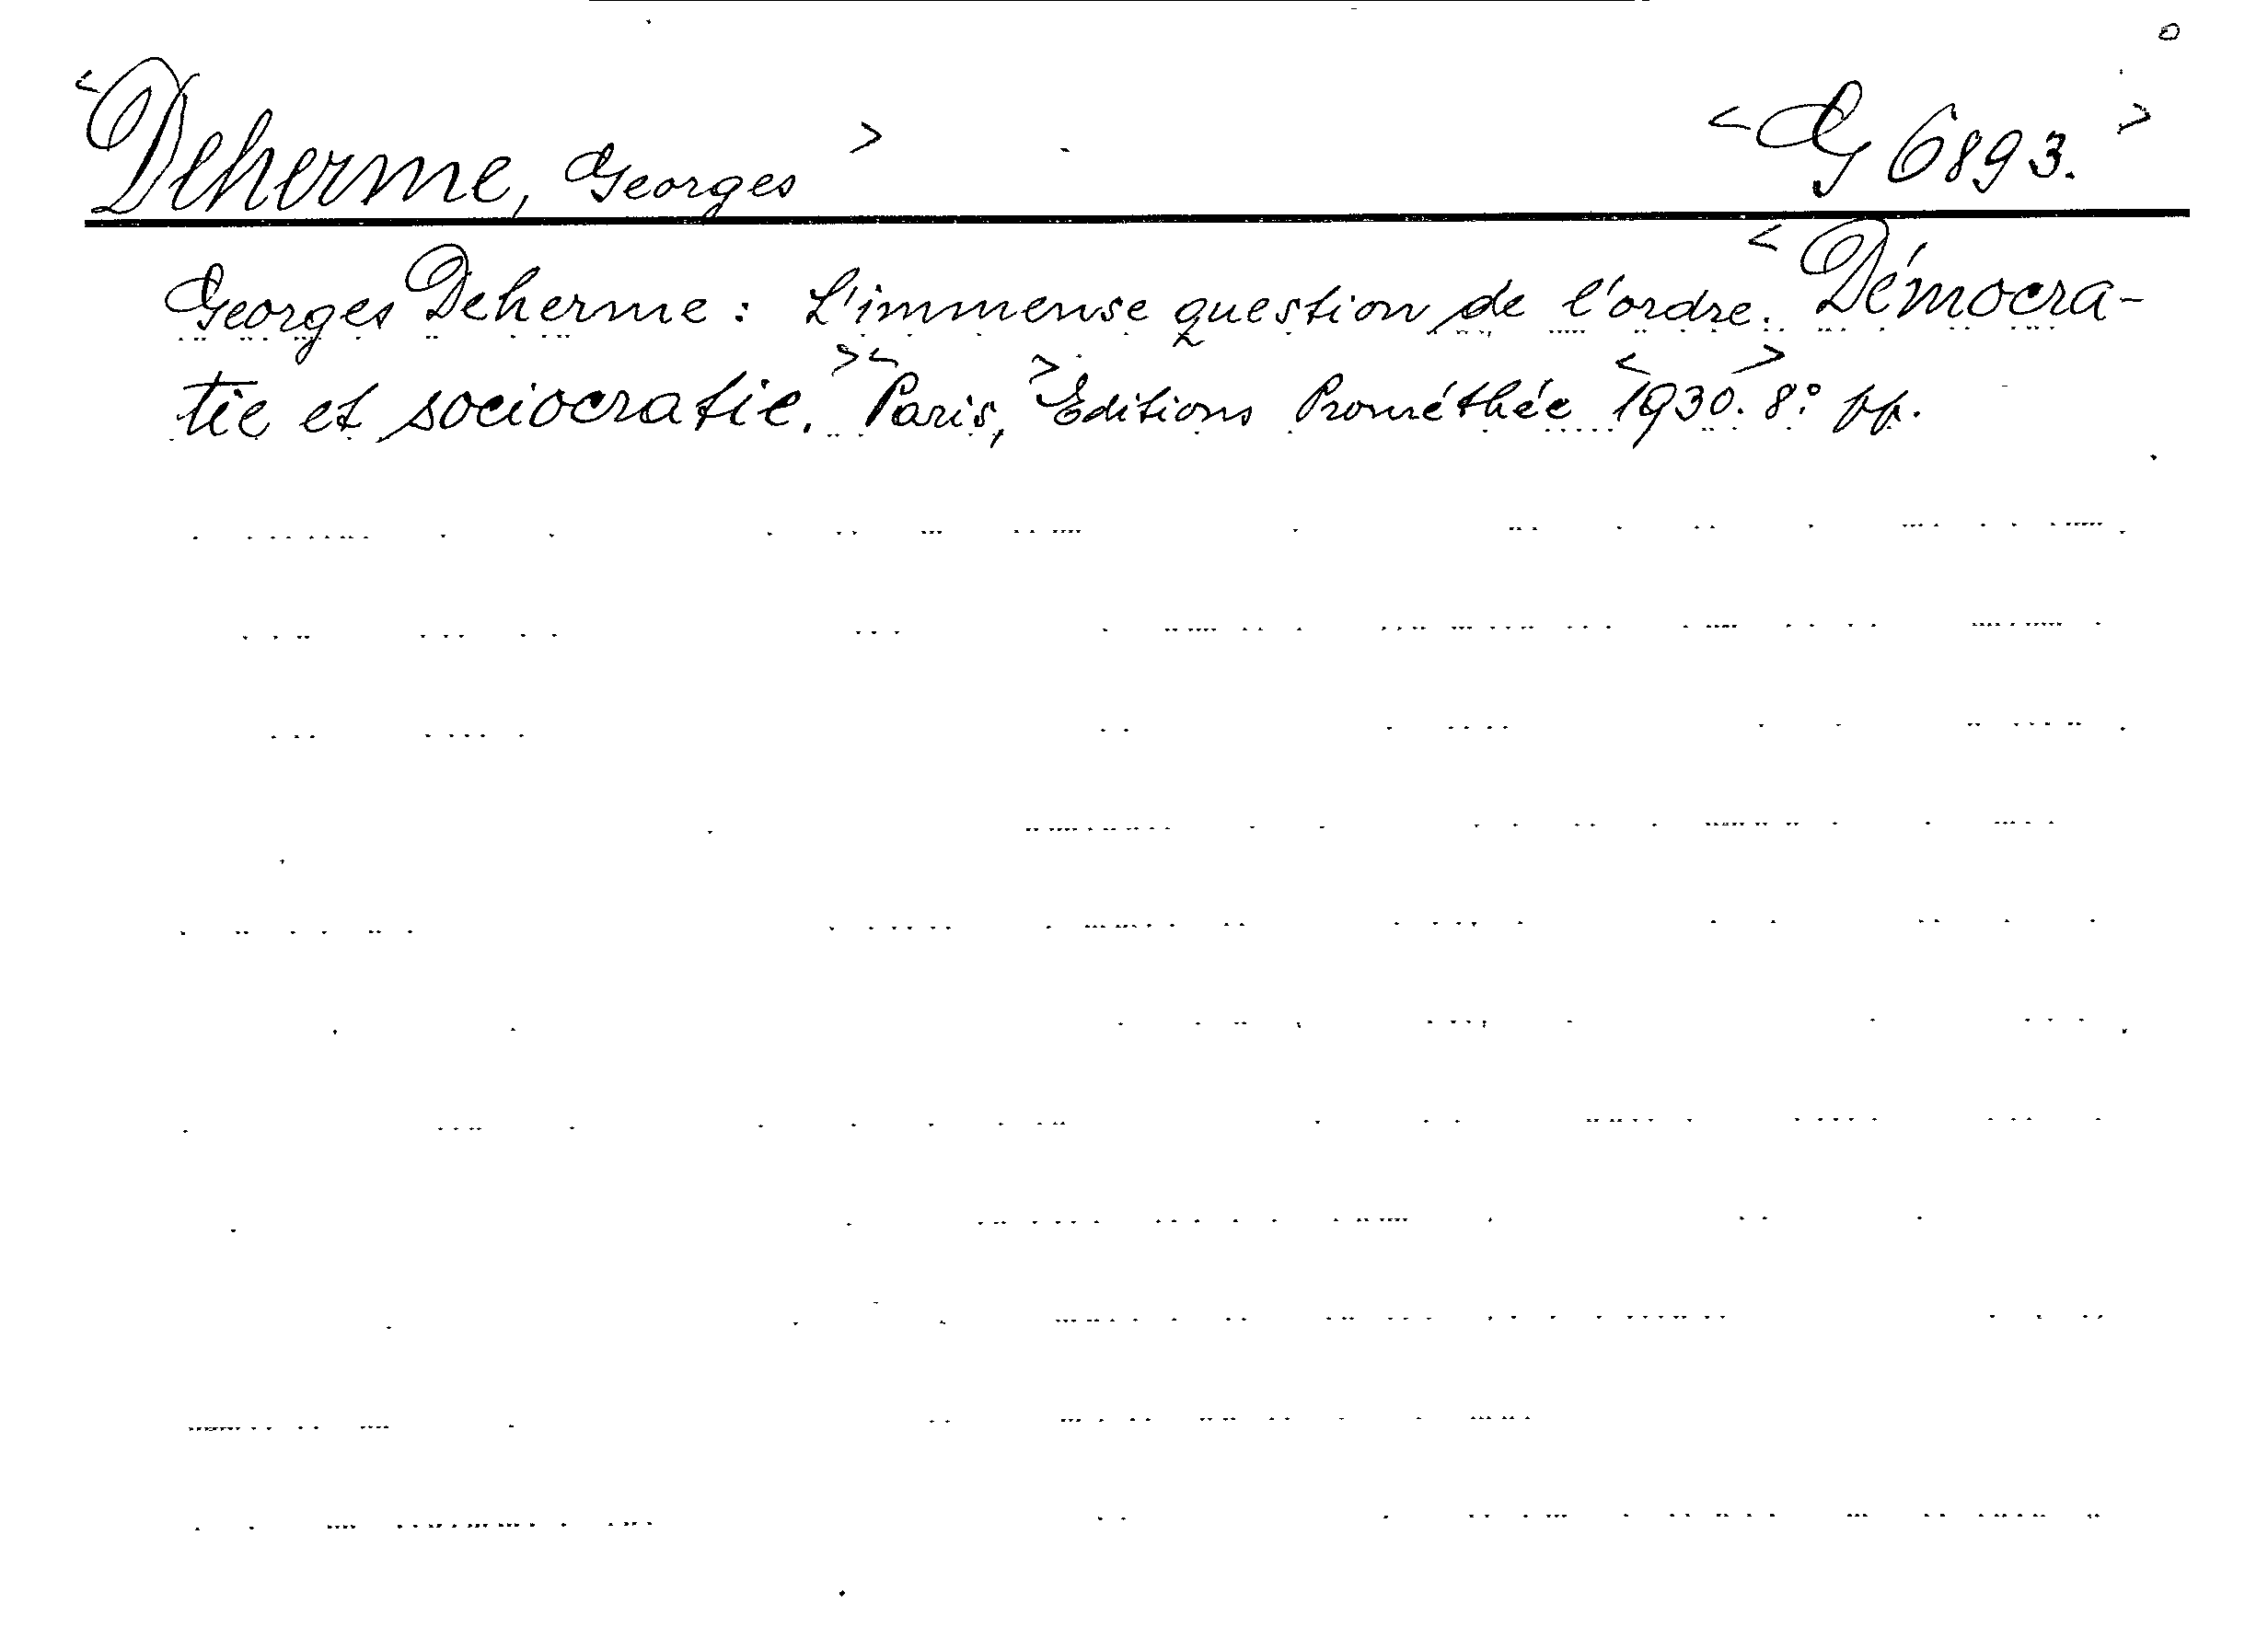 <Deherme, Georges> <G 6893.>
Georges Deherme: L'immense question de l'ordre. <Démocra-
tie et sociocratie.> <Paris,> Editions Prométhée <1930.> 8° pp.